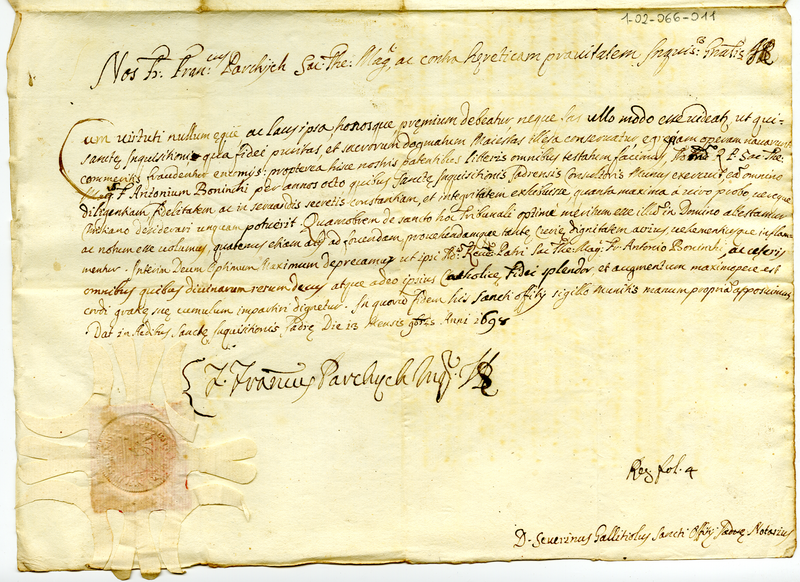 1-02-066-011
Nos Fr. Fran.cus Parchych Sac: The: Mag.r ac contra hęreticam pravitatem Inquis.r Gñalis
Cum virtuti nullum ęque ac laus ipsa, honosque, pręmium debeatur, neque fas ullo modo esse videatr, ut qui
sanctę Inquisitionis qua fidei puritas, et sacrorum dogmatum Maiestas illesa conservatur, egregiam operam navarunt
commeritis fraudentur encomijs: propterea hisce nostris patentibus litteris omnibus testatum facimus, R. P. Sac: The:
Mag. F. Antonium Boninchi per annos octo quibus Sanctę Inquisitionis Jadrensis Consultoris Munus exercuit eã omnino
diligentiam, fidelitatem ac in servandis secretis constantiam, et integritatem exhibuisse, quanta maxima à viro probo, ac
desiderari unquam potuerit. Quamobrem de sancto hoc Tribunali optime meritum esse illum in Domino attestamur
ac notum esse volumus, quatenus etiam alij ad fovendam, provehendamque dignitatem acrius, vehementiusque
mentur. Interim Deum Optimum Maximum deprecamur ut ipsi Re.do Patri Sac: The: Mag: Fr. Antonio Boninchi, ac cęteris
omnibus quibus divinarum rerum decus atque adeo ipsius Catholicę fidei splendor et augmentum maximopere est
cordi gratię suę cumulum impartiri dignetur. In quorum fidem his sancti offitij sigillo munitis manum propriã apposuimus
Dat. in Ædibus Sanctę Inquisitionis Jadrę Die 13 Mensis 9bris Anni 1698
F. Fran.cus Parchych Inq.r
Reg. fol. 4
D. Severinus Gallitiolus Sancti Offitij Jadrę Notarius